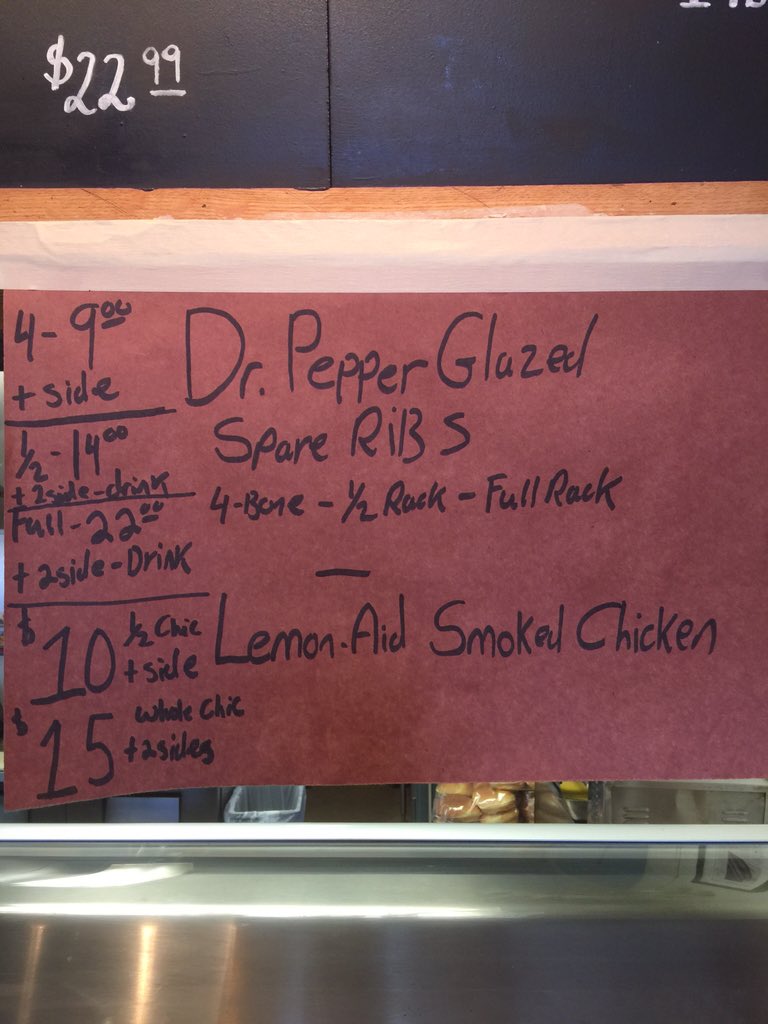 $22.99
4-9.00
+ side
1/2-14.00
+ 2side-drink
Full-22.00
+ 2side-Drink
$10 1/2 Chic
+ side
$15 whole Chic
+2sides
Dr. Pepper Glazed
Spare RiBS
4-Bone - 1/2 Rack - Full Rack
—
Lemon-Aid Smoked Chicken